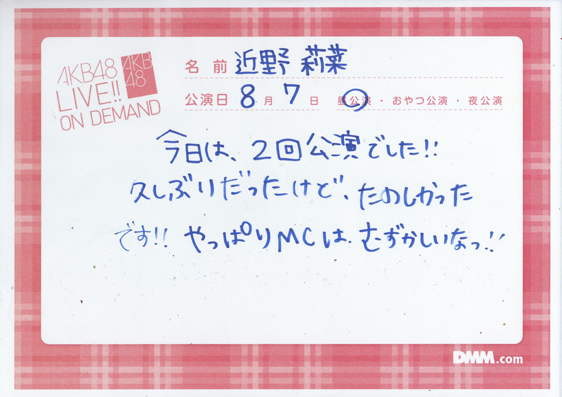 AKB48
LIVE!!
ON DEMAND
AKB
48
名前 近野 莉菜
公演日 8月7日 昼公演・おやつ公演・夜公演
今日は、2回公演でした!!
久しぶりだったけど、たのしかった
です!! やっぱりMCは、むずかしいなっ!!
DMM.com